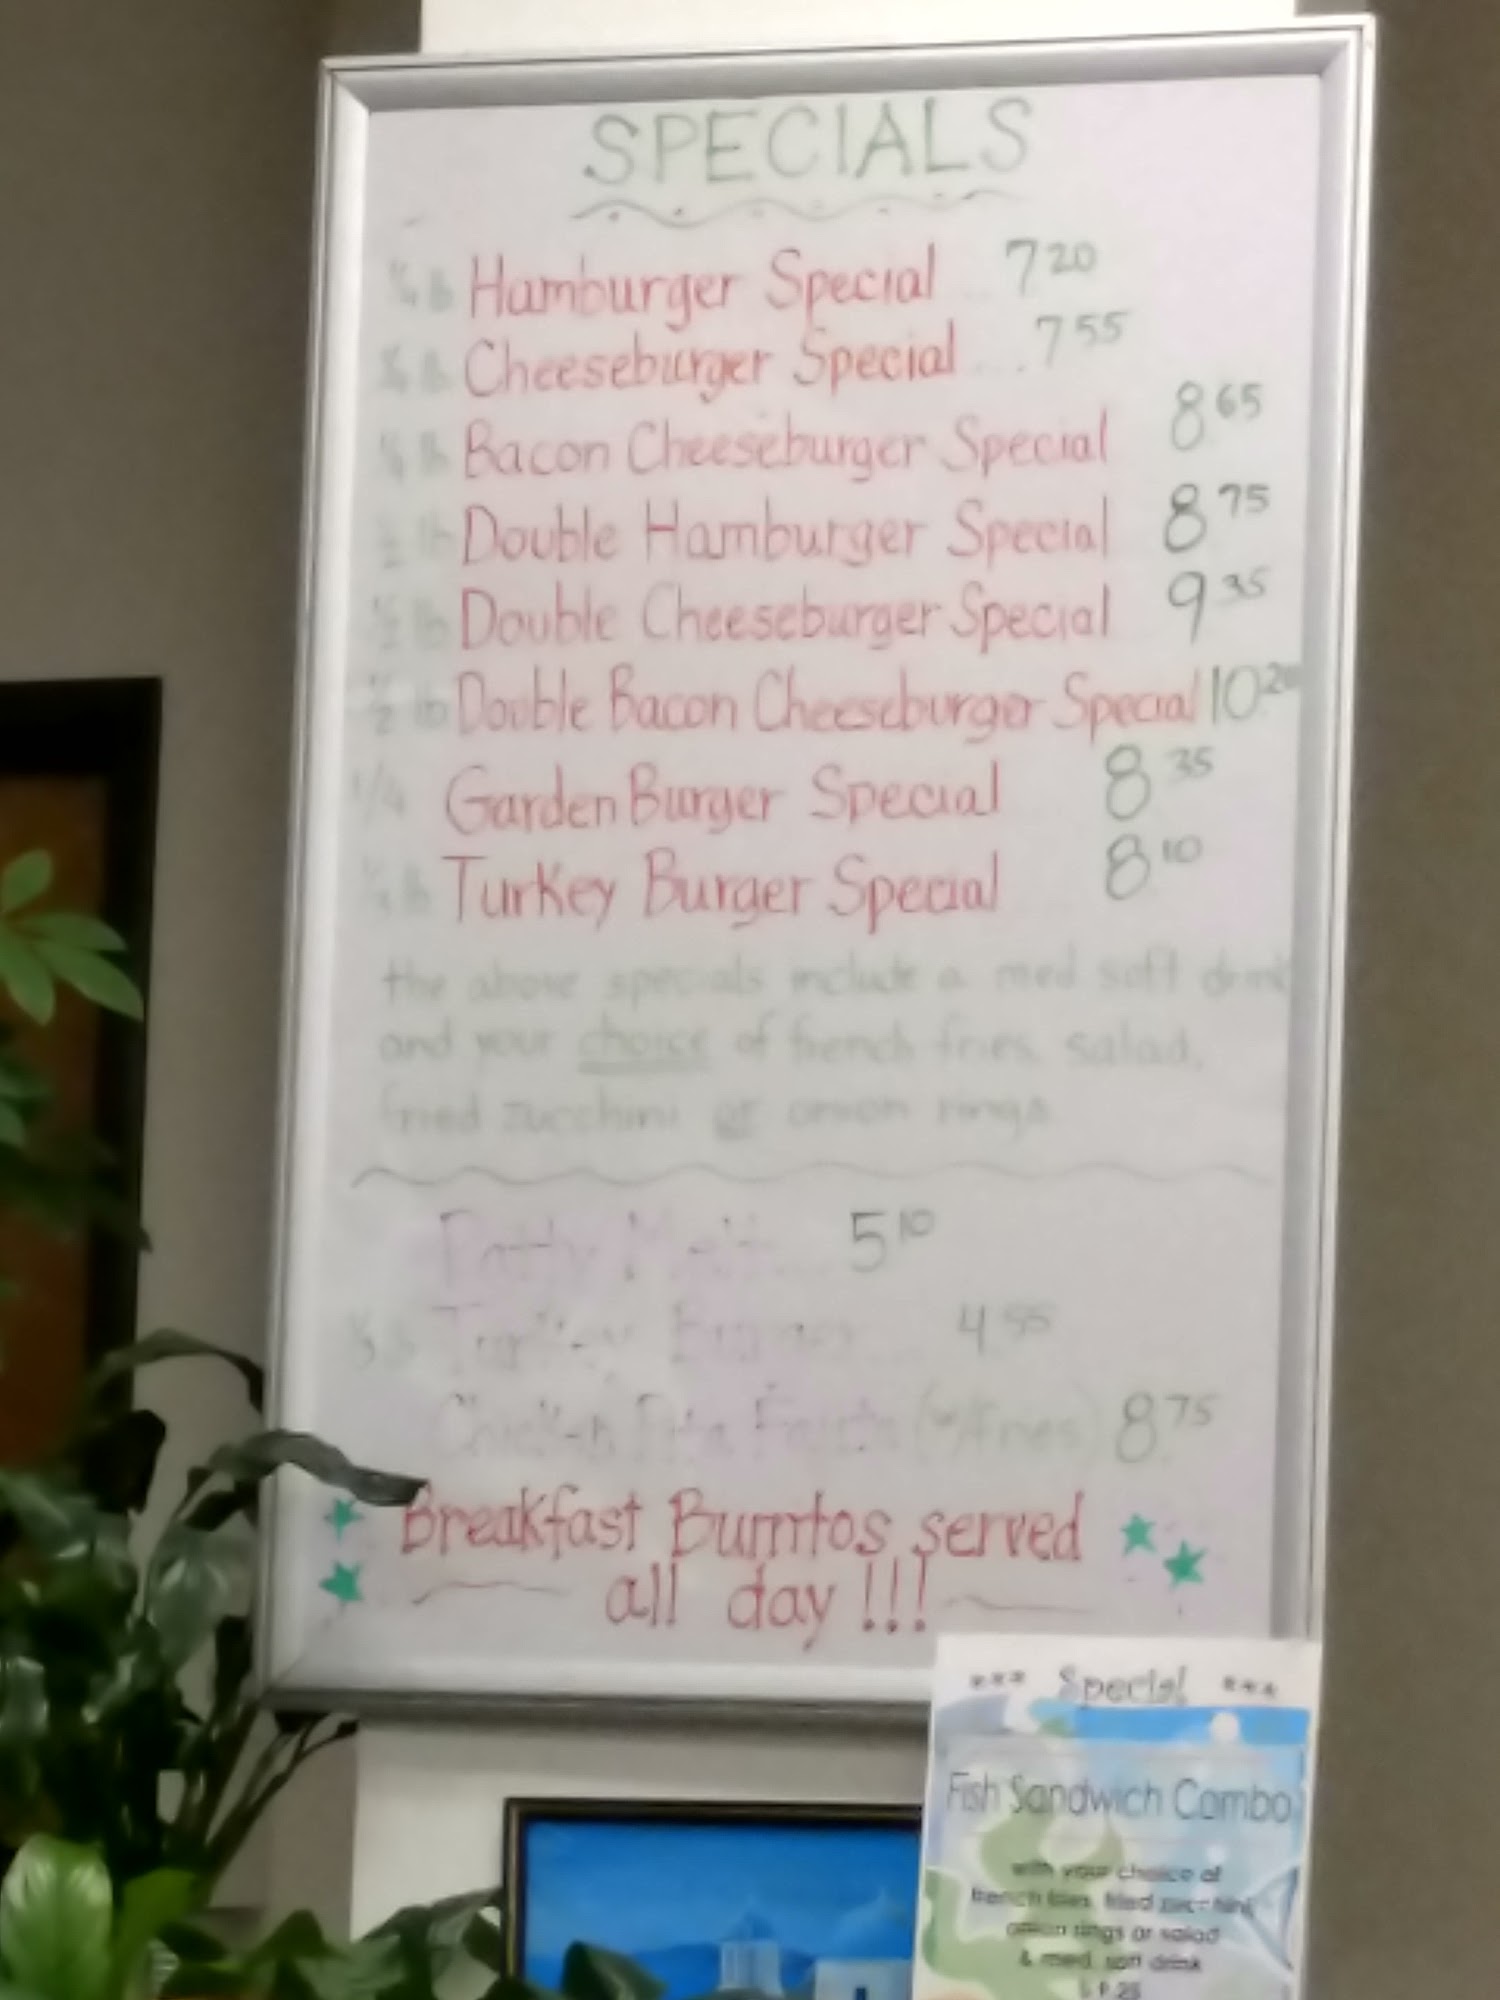 SPECIALS
1/4 lb Hamburger Special 7 20
1/4 lb Cheeseburger Special ... 7 55
1/4 lb Bacon Cheeseburger Special 8 65
1/2 lb Double Hamburger Special 8 75
1/2 lb Double Cheeseburger Special 9 35
1/2 lb Double Bacon Cheeseburger Special 10.20
1/4 GardenBurger Special 8 35
1/4 lb Turkey Burger Special 8 10
the above specials include a med soft drink
and your choice of french fries, salad,
fried zucchini or onion rings
Patty Melt ... 5 10
1/3 lb Turkey Burger ... 4 55
Chicken Pita (w/fries) 8 75
Breakfast Burritos served
all day !!!
*** Special ***
Fish Sandwich Combo
with your choice of
french fries, fried zucchini,
onion rings or salad
& med. soft drink
$9.25